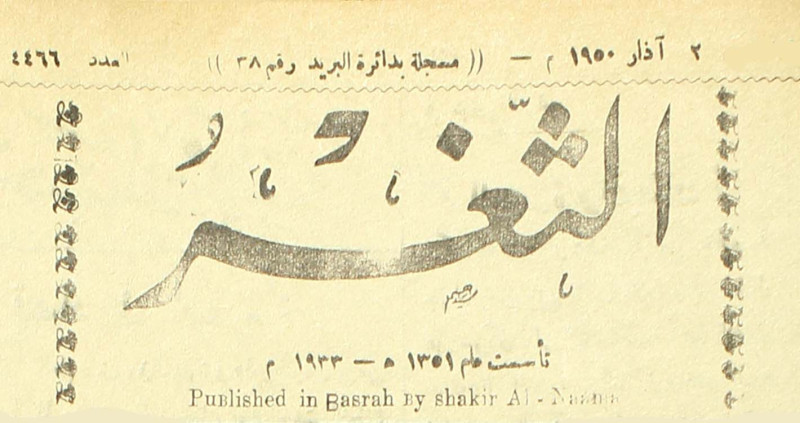 ٢ آذار ١٩٥٠ م — (( مسجلة بدائرة البريد رقم ٣٨ )) العدد ٤٤٦٦
الثَّغْر
تأسست عام ١٣٥١ ه — ١٩٣٣ م
PuBlished in Basrah By shakir Al - Naama